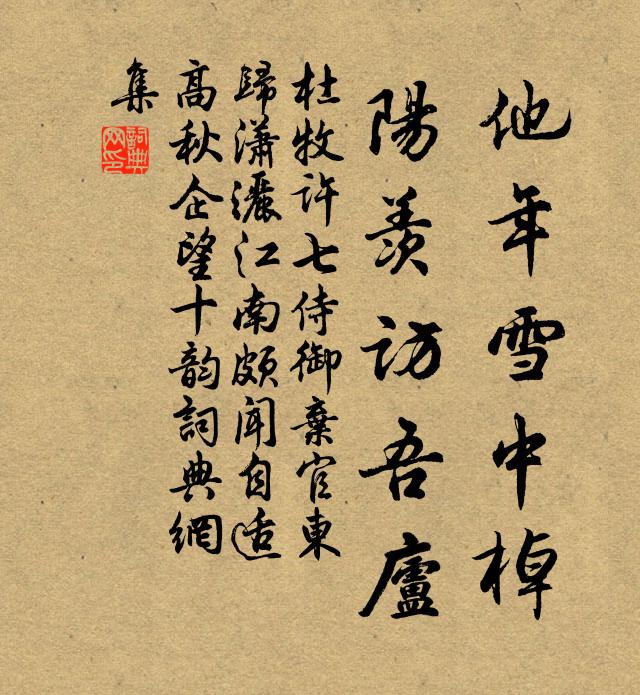 他年雪中棹
陽羨訪吾廬
杜牧許七侍御棄官東
歸瀟灑江南頗聞自适
高秋企望十韵詞典網
集
詞典網印